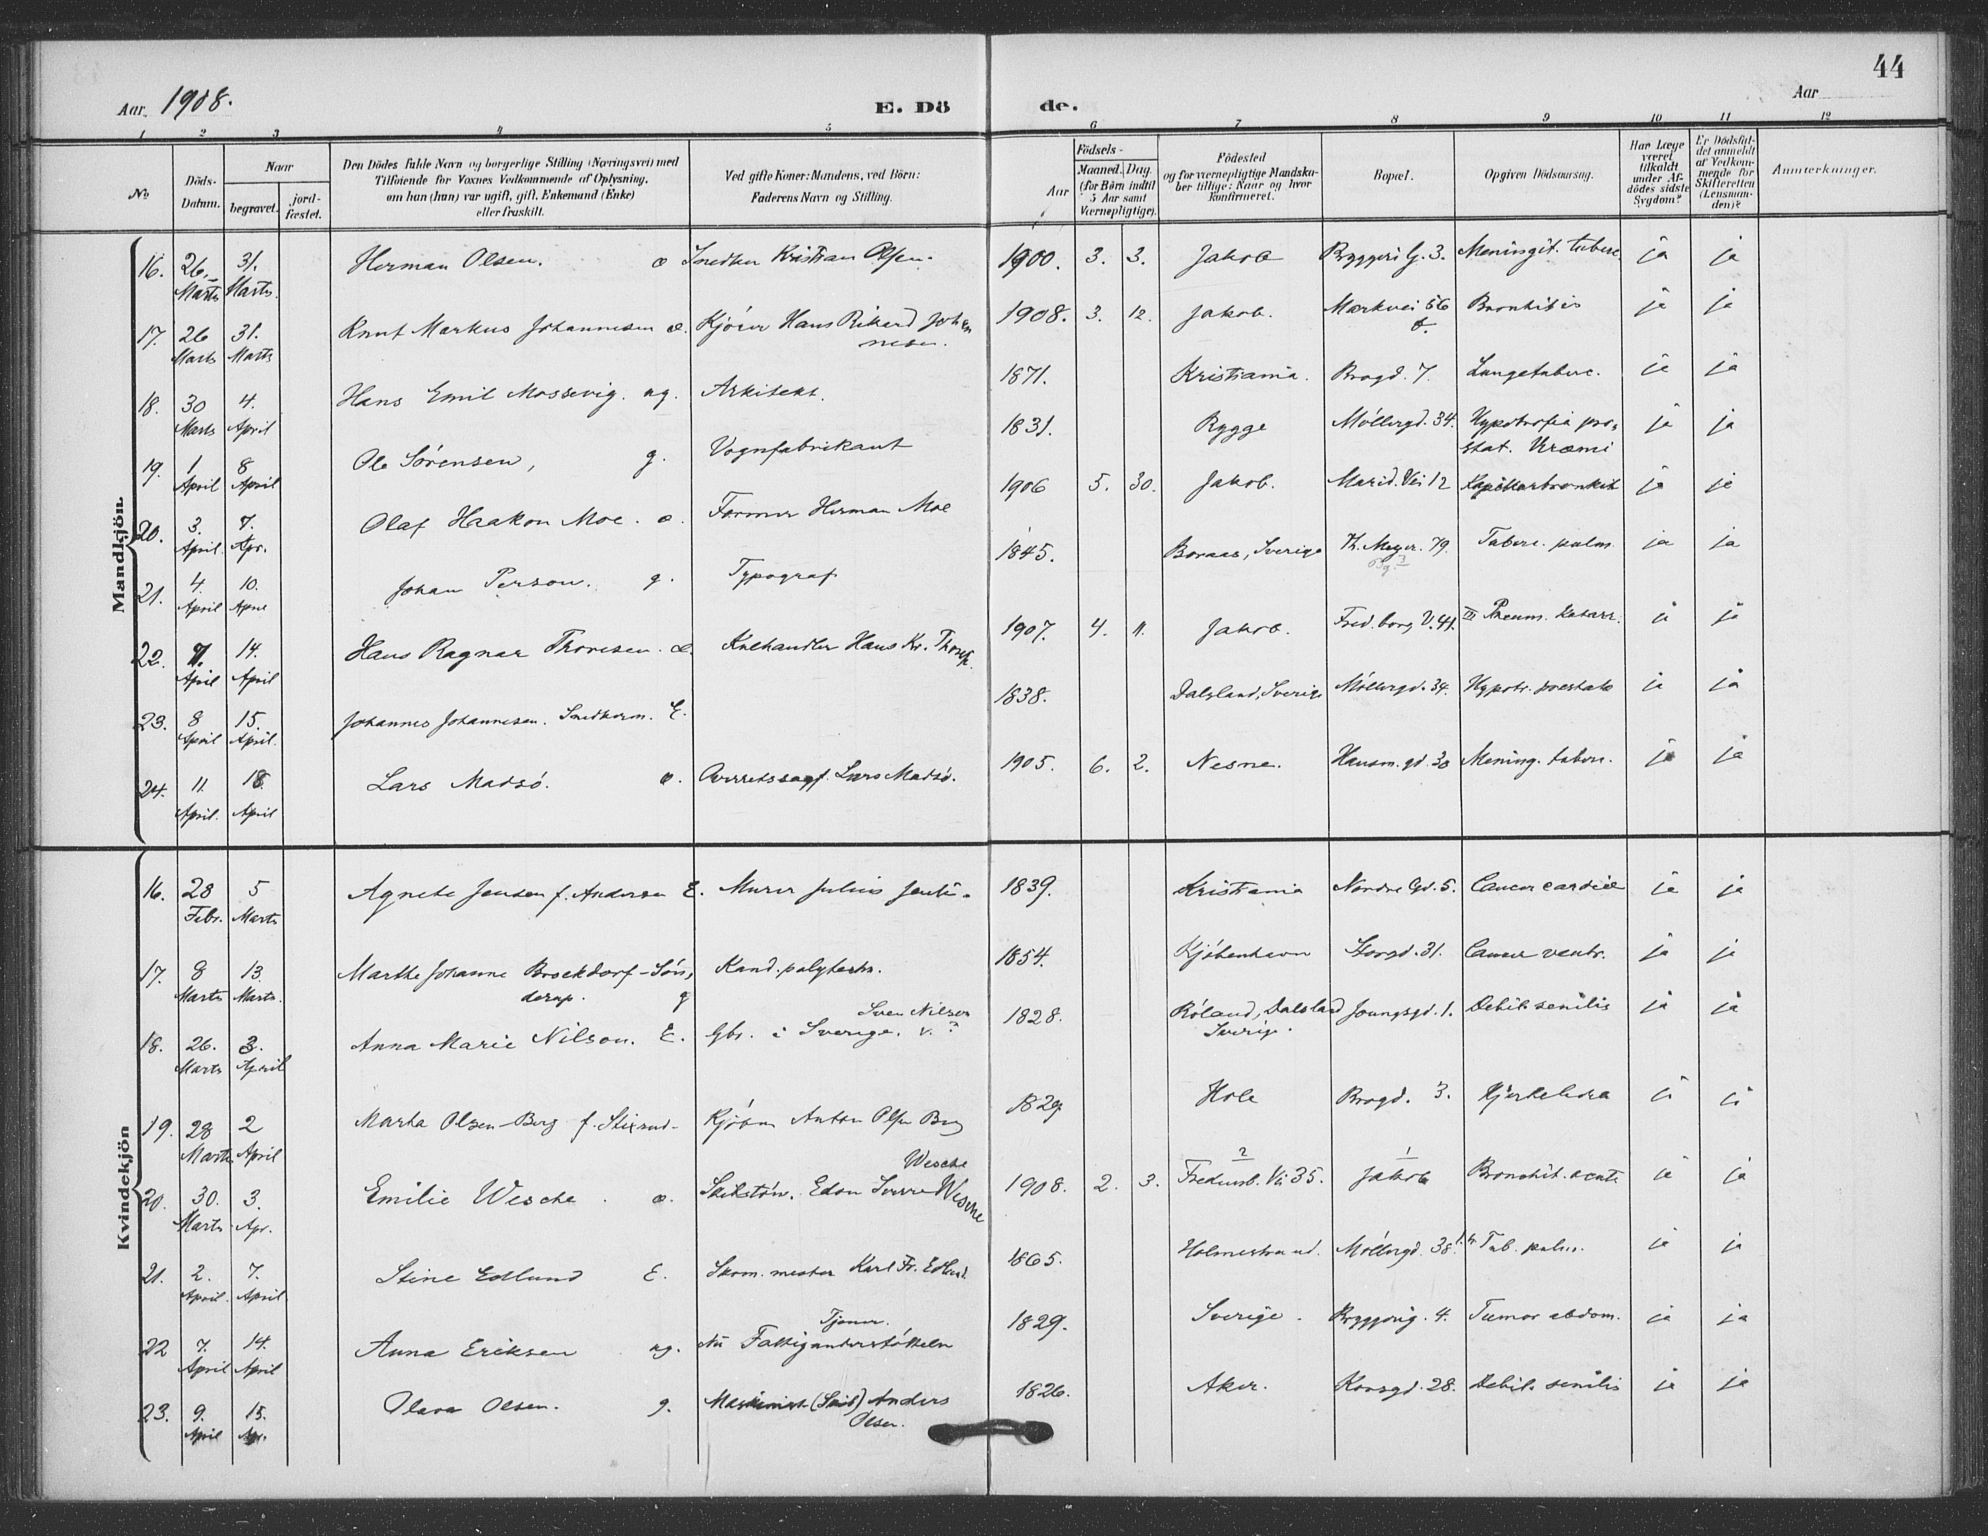 44
Aar 1908.
E. Dö de.
Aar
1 2 3 4 5 6 7 8 9 10 11 12
No
Döds-Datum.
Naar
begravet.
jord-fæstet.
Den Dödes fulde Navn og borgerlige Stilling (Næringsvei) med
Tilføiende for Voxnes Vedkommende af Oplysning,
om han (hun) var ugift, gift, Enkemand (Enke)
eller fraskilt.
Ved gifte Koner: Mandens, ved Börn:
Faderens Navn og Stilling.
Födsels-
Aar
Maaned. Dag.
(for Börn indtil
5 Aar samt
Værnepligtige).
Födested
og for værnepligtige Mandska-
ber tillige: Naar og hvor
konfirmeret.
Bopæl.
Opgiven Dödsaarsag.
Har Læge
været
tilkaldt
under Af-
dödes sidste
Sygdom?
Er Dödsfal-
det anmeldt
af Vedkom-
mende for
Skifteretten
(Lensman-
den)?
Anmerkninger.
Mandkjön.
16. 26. Marts 31. Marts. Herman Olsen. Snedker Kristian Olsen. 1900. 3. 3. Jakob Bryggeri G. 3. Meningit. tuberc. ja ja
17. 26 Marts 31. Marts Knut Markus Johannesen Kjörer Hans Rikard Johan
nesen. 1908. 3. 12. Jakob. Markvei 56 Bronkitis ja ja
18. 30 Marts 4. April Hans Emil Mossevig. ug. Arkitekt. 1871. Kristiania. Brogd. 7 Lungetuberc. ja ja
19. 1 April 8 April Ole Sörensen, g. Vognfabrikant 1831. Rygge Möllergd. 34. Hypotrofia pro-
stat. Uræmi ja ja
20. 3. April. 7. Apr. Olaf Haakon Moe. Former Herman Moe 1906 5. 30. Jakob. Marid. Vei 12 Kapillærbronkit ja ja
21. 4. April 10. Johan Person. g. Typograf 1845. Boraas, Sverige Th. Meyer. 79. Tuberc. pulm. ja ja
22. 7. April 14. April Hans Ragnar Thoresen. Kulhandler Hans Kr. 1907. 4. 11. Jakob. Fred. borg V. 41. Pneum. Katarr. ja ja
23. 8 April 15. April. Johannes Johannesen. Snedkerm. E. 1838. Dalsland, Sverige Möllergd. 34. Hypotr. prostata ja ja
24. 11. April. 18. April Lars Madsö. Overretssagf. Lars Madsö. 1905. 6. 2. Nesne. Hausm. gd. 30 Mening. tuberc. ja ja
Kvindekjön
16. 28 Febr. 5 Marts Agnete Jensen f. Andersen E. Murer Julius 1839. Kristiania Nordre Gd. 5. Cancer cardiæ ja ja
17. 8 Marts 13. Marts. Marthe Johanne Brockdorf-Sön-
derup. g Kand. polytechn. 1854. Kjöbenhavn Storgd. 31. Cancer ventr. ja ja
18. 26. Marts 3. April Anna Marie Nilson. E. Gbr. i Sverige. Sven Nilsen 1828. Röland, Dalsland
Sverige. Youngsgd. 1. Debil. senilis ja ja
19. 28 Marts 2 April Marta Olsen-Berg f. Stixrud. Kjörer Anton Olsen Berg 1829 Hole Brogd. 3. Hjertelidea ja ja
20. 30. Marts 3. Apr. Emilie Wesche. Edon Sverre Wesche Wesche 1908. 2. 3. 2 Fredensb. Vei 35. 1 Jakob Bronchit. acute ja ja
21. 2. April. 7. April Stine Edlund E. Skom. mester Karl Fr. Edlund. 1865. Holmestrand. Möllergd. 38 Tub. pulm. ja ja
22 7. April 14. April Anna Eriksen ug. Tjener.
nu Fattigunderstöttelse 1829. Sverige. Bryggerig. 4. Tumor abdom. ja ja
23. 9. April 15. Apr. Olava Olsen. g. Maskinist (Skib) Anders
Olsen. 1826. Aker. Korsgd. 28. Debil. senilis ja ja